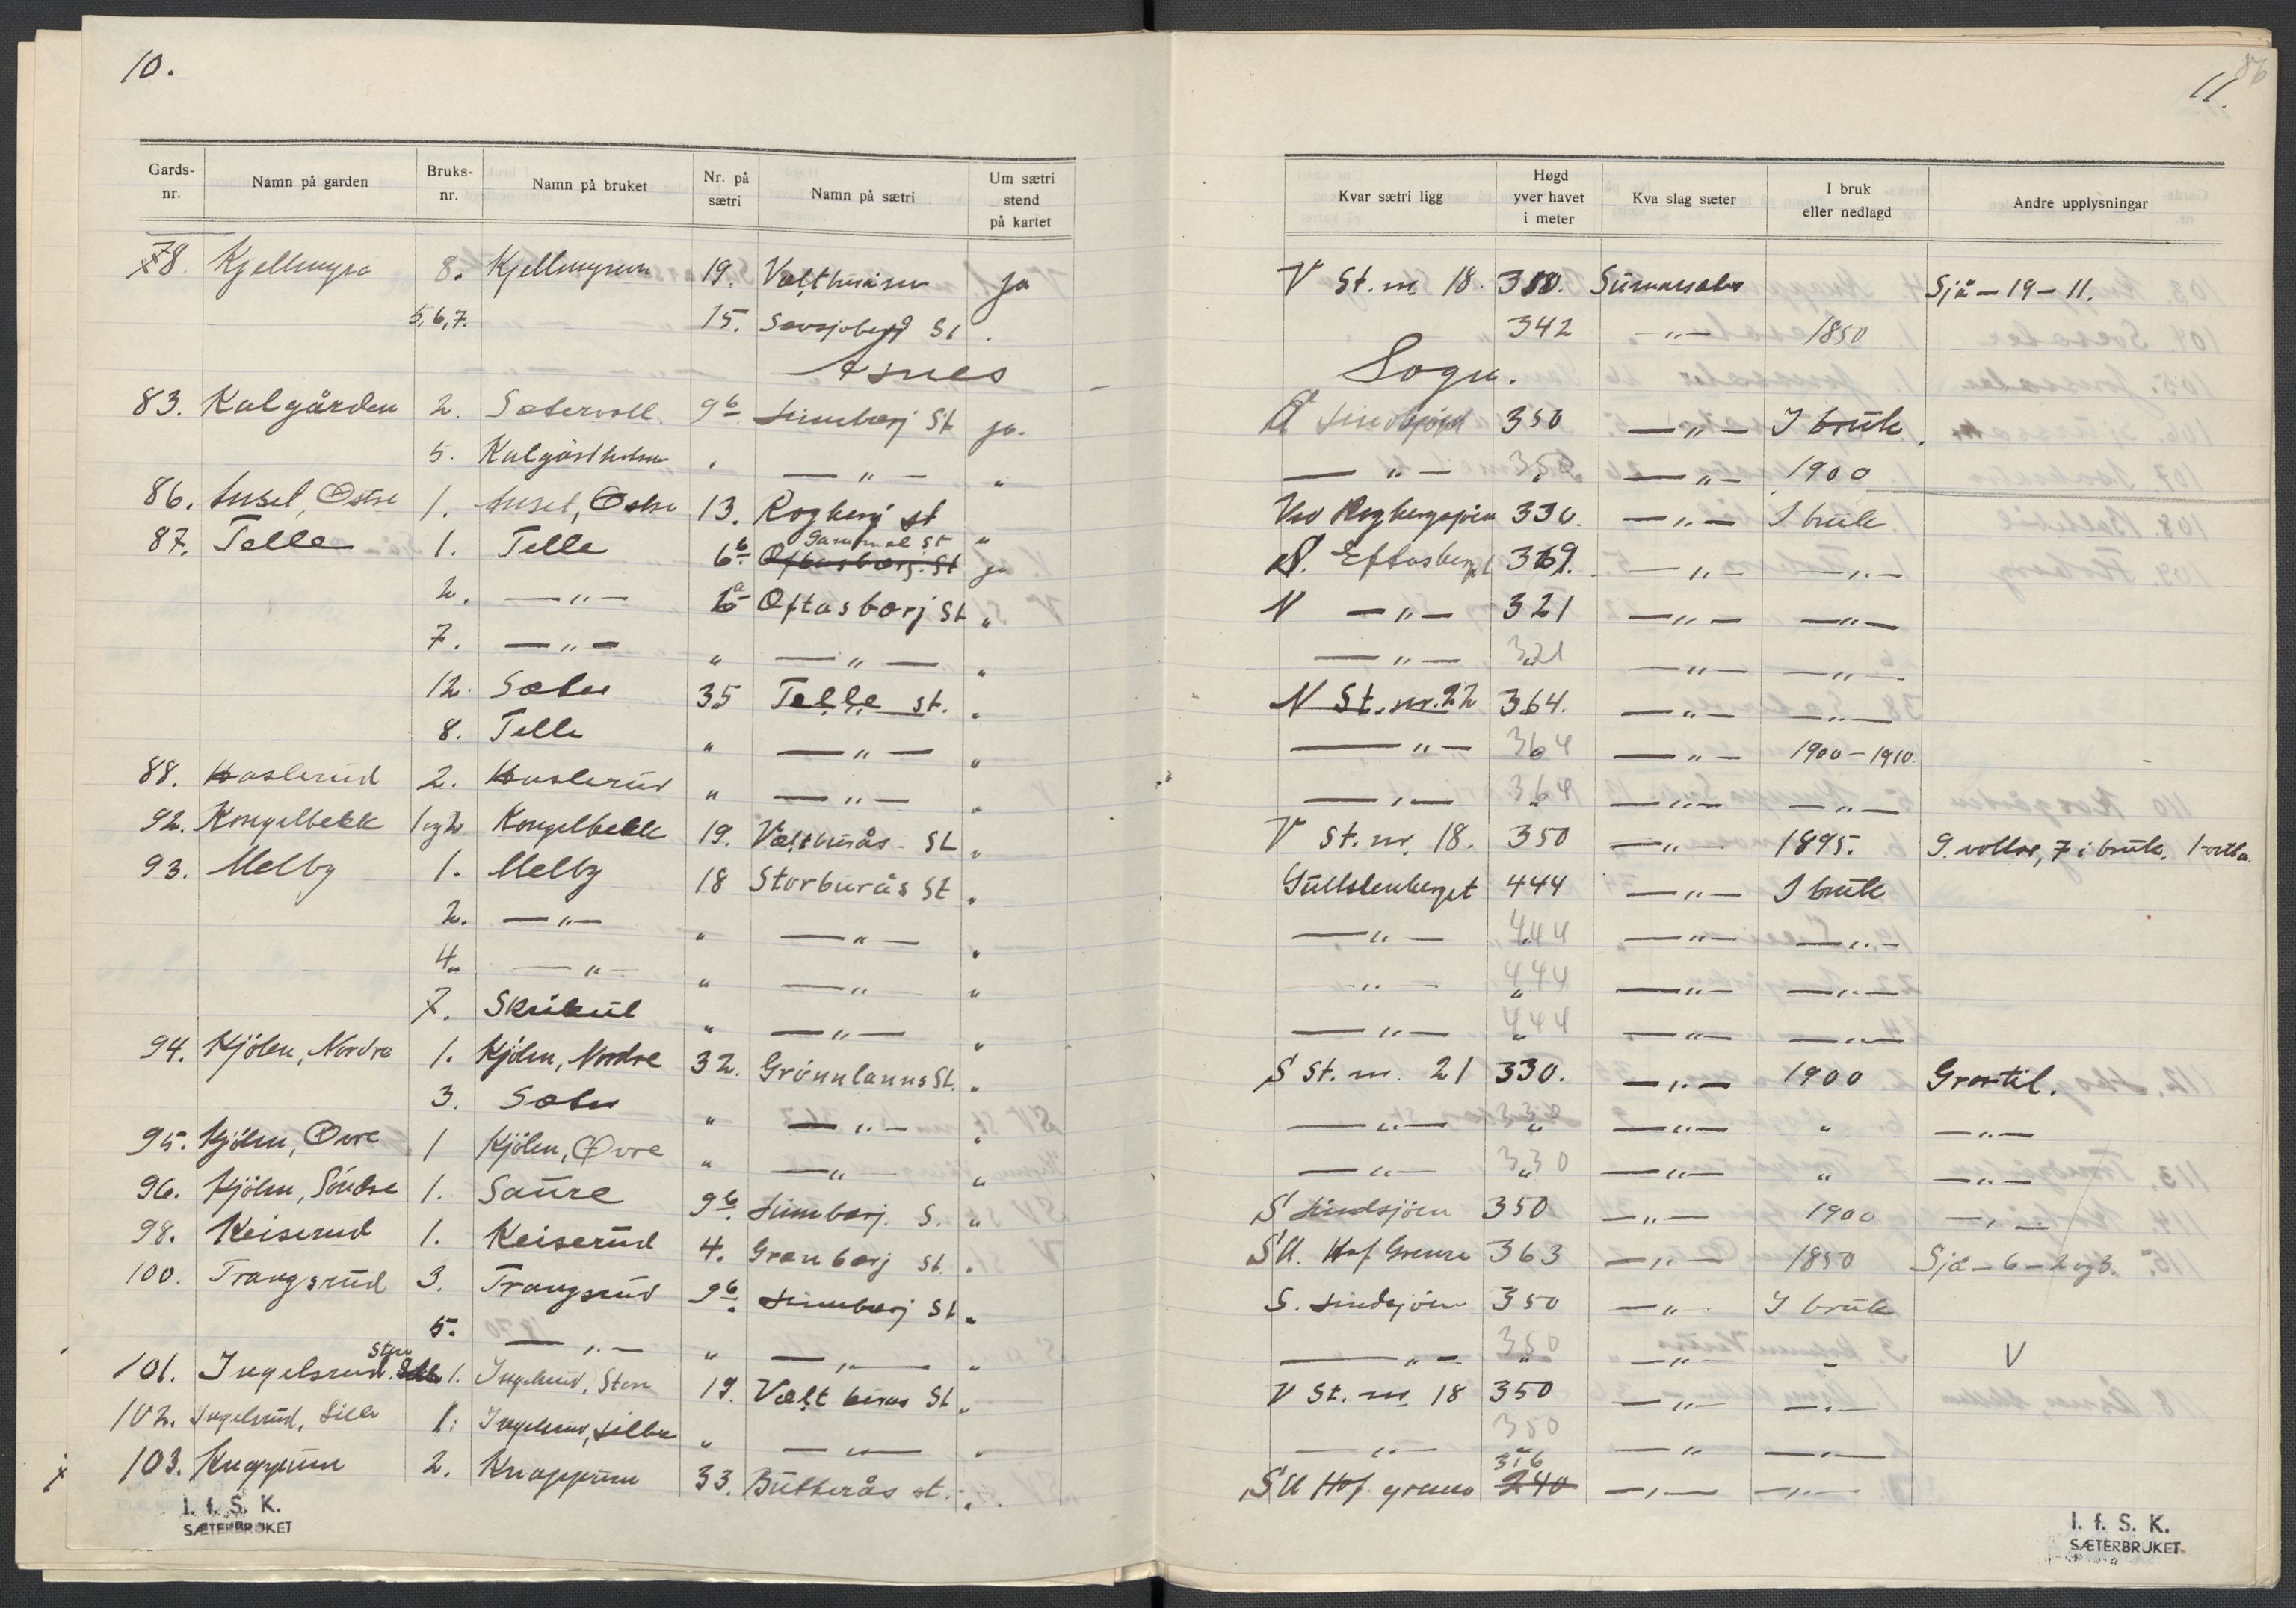 10.
Gards-nr. Namn på garden Bruks-nr. Namn på bruket Nr. på sætri Namn på sætri Um sætri stend på kartet
78. Kjellmyra 8. Kjellmyren 19. ja
5, 6, 7. 15. St .
Åsnes
83. Kalgården 2. Sætervoll 9b Linnberj St ja.
5. Kalgårdholm " —"— "
86. Østre 1. Østre 13. Rogberj st "
87. Telle 1. Telle 6b Gammal st Oftasbærj. St ja
2. —"— 6a Oftasbærj St "
7. —"— " —"— "
12. Sæter 35 Telle st. "
8. Telle " —"— "
88. Haslerud 2. Haslerud " —"— "
92. Kongelbekk 1 og 2 Kongelbekk 19. Væltburås - St "
93. Melby 1. Melby 18 Storburås St "
2. —"— " —"— "
4. —"— " —"— "
7. " —"— "
94. Kjölen, Nordre 1. Kjölen, Nordre 32. Grönnlanns St. "
3. Sæter " —"— "
95. Kjölen, Øvre 1 Kjölen, Øvre " —"— "
96. Kjölen, Söndre 1. Saure 9b. Linnberj. S. "
98. Keiserud 1. Keiserud 4. Granberj St. "
100. Trangsrud 3. Trangsrud 9b. Linnberj St "
5. —"— " —"— "
101. Ingelsrud, Store 1. Ingelsrud, Store 19. Væltburås St "
102. Ingelsrud, Lille 1. Ingelsrud, Lille " —"— "
103. Knappum 2. Knappum 33. Butterås st. "
I. f. S. K.
SÆTERBRUKET
86
11.
Kvar sætri ligg Høgd yver havet i meter Kva slag sæter I bruk eller nedlagd Andre upplysningar
V St. nr. 18. Sumarsæter Sjå - 19 - 11.
342 —"— 1850
Sogn.
350 —"— I bruk
—"— 350 —"— 1900
Ved 330. —"— I bruk
S. Eftasberget 369. —"— —"—
N —"— 321 —"— —"—
—"— 321 —"— —"—
N St. nr. 22 364. —"— —"—
—"— 364 —"— 1900 - 1910.
—"— 364 —"— —"—
V St. nr. 18. 350 —"— 1895. 9 vollar, 7 i bruk.
Gullstenberget 444 —"— I bruk
—"— 444 —"— —"—
—"— 444 —"— —"—
—"— 444 —"— —"—
S St. nr. 21 330. —"— 1900 Grortil.
—"— 330 —"— " —"—
—"— 330 —"— " —"—
S Lindsjöen 350 —"— 1900 —"—
SA. Hof Grense 363 —"— 1850 Sjå - 6 - 2 og 3.
S. Lindsjöen 350 —"— I bruk
—"— 350 —"— " V
V St. nr 18 350 —"— —"—
—"— 350 —"— —"—
SA Hof grense 316 240 —"— —"—
I. f. S. K.
SÆTERBRUKET